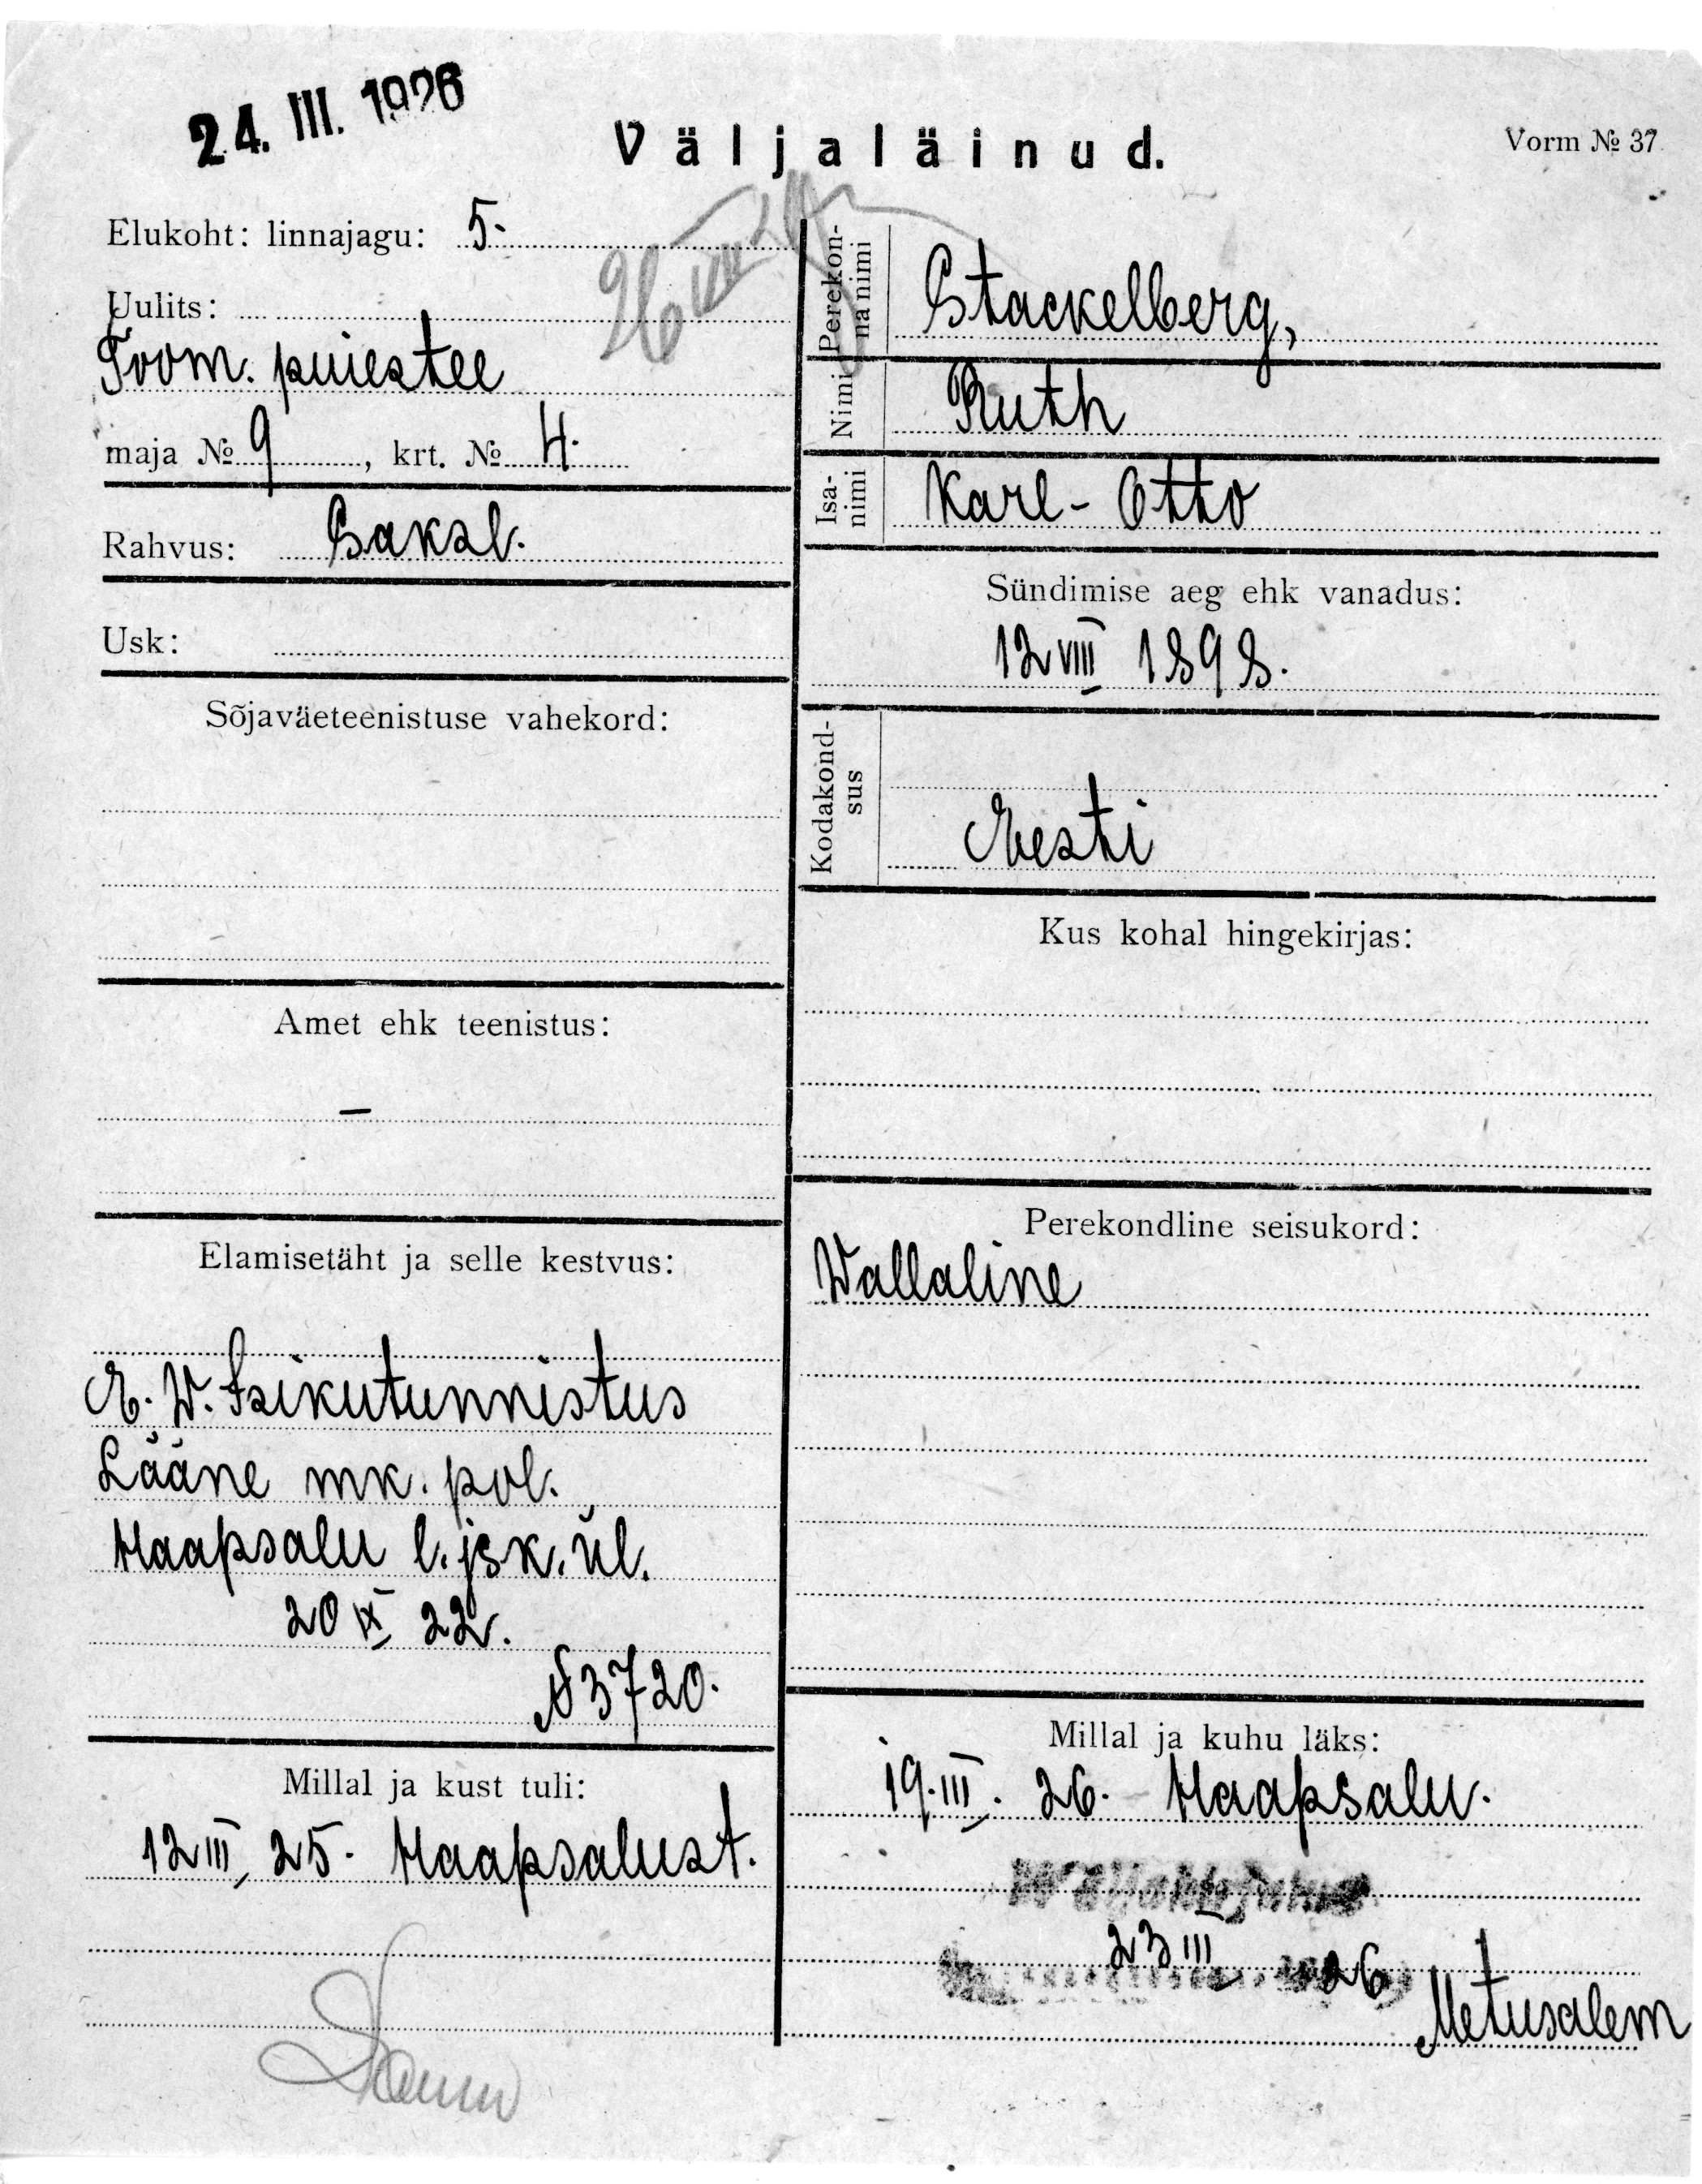 24. III. 1926
Väljaläinud.
Vorm № 37.
Elukoht: linnajagu: 5.
Uulits:
Toom. puiestee
maja № 9, krt. № 4.
Rahvus: Saksl.
Usk:
Sõjaväeteenistuse vahekord:
Amet ehk teenistus:
—
Elamisetäht ja selle kestvus:
E. W. Isikutunnistus
Lääne mk. pol.
Haapsalu l. jsk. ül.
20 IX 22.
№ 3720.
Millal ja kust tuli:
12 III 25. Haapsalust.
Perekon-
na nimi
Stackelberg,
Nimi
Ruth
Isa-
nimi
Karl-Otto
Sündimise aeg ehk vanadus:
12 VIII 1898.
Kodakond-
sus
Eesti
Kus kohal hingekirjas:
Perekondline seisukord:
Wallaline
Millal ja kuhu läks:
19. III. 26. Haapsalu.
23 III 26
Metusalem